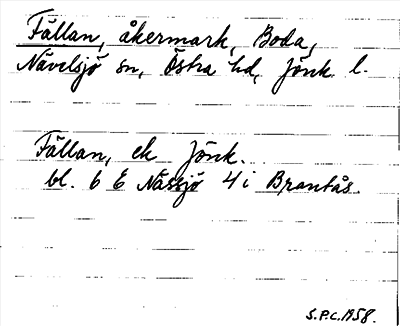 Fällan, åkermark, Boda,
Nävelsjö sn, Östra hd, Jönk. l.
Fällan, ek Jönk.
bl. 6 E Nässjö 4 i Brantås.
S.P.C. 1958.